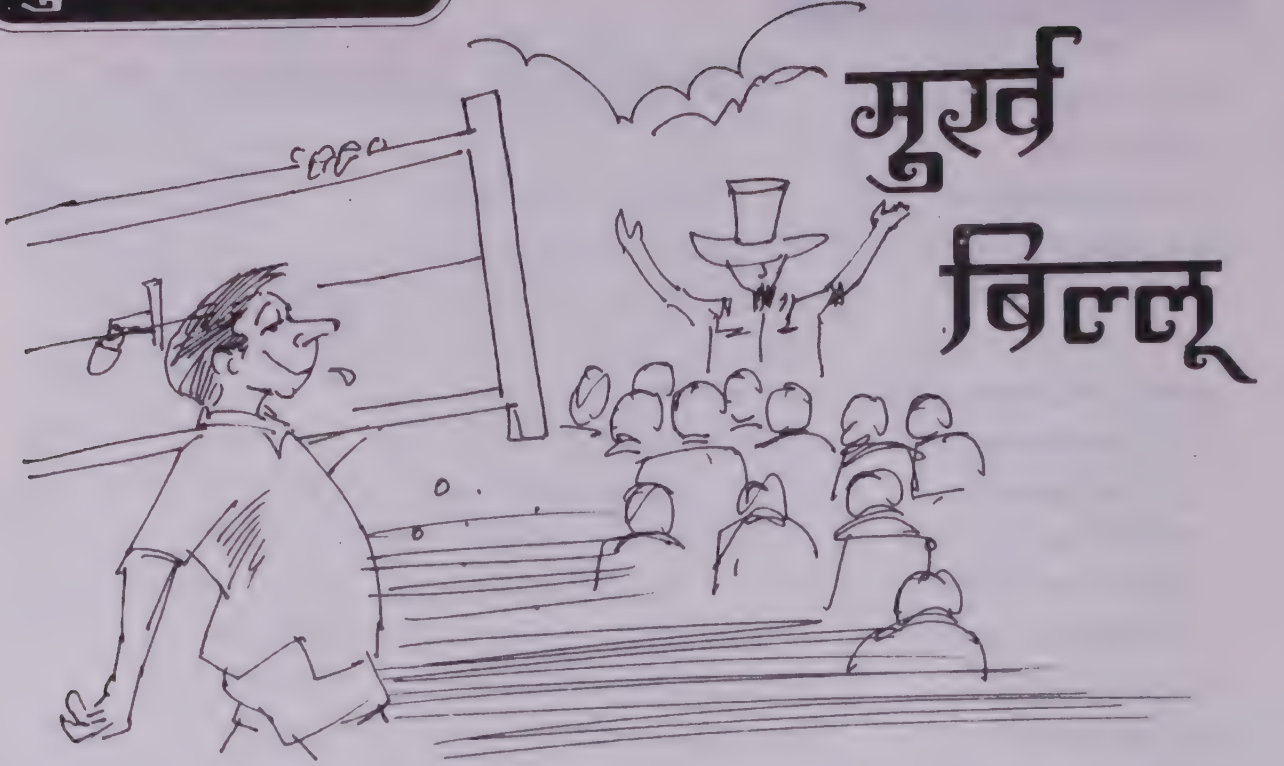 मुर्ख
बिल्लू